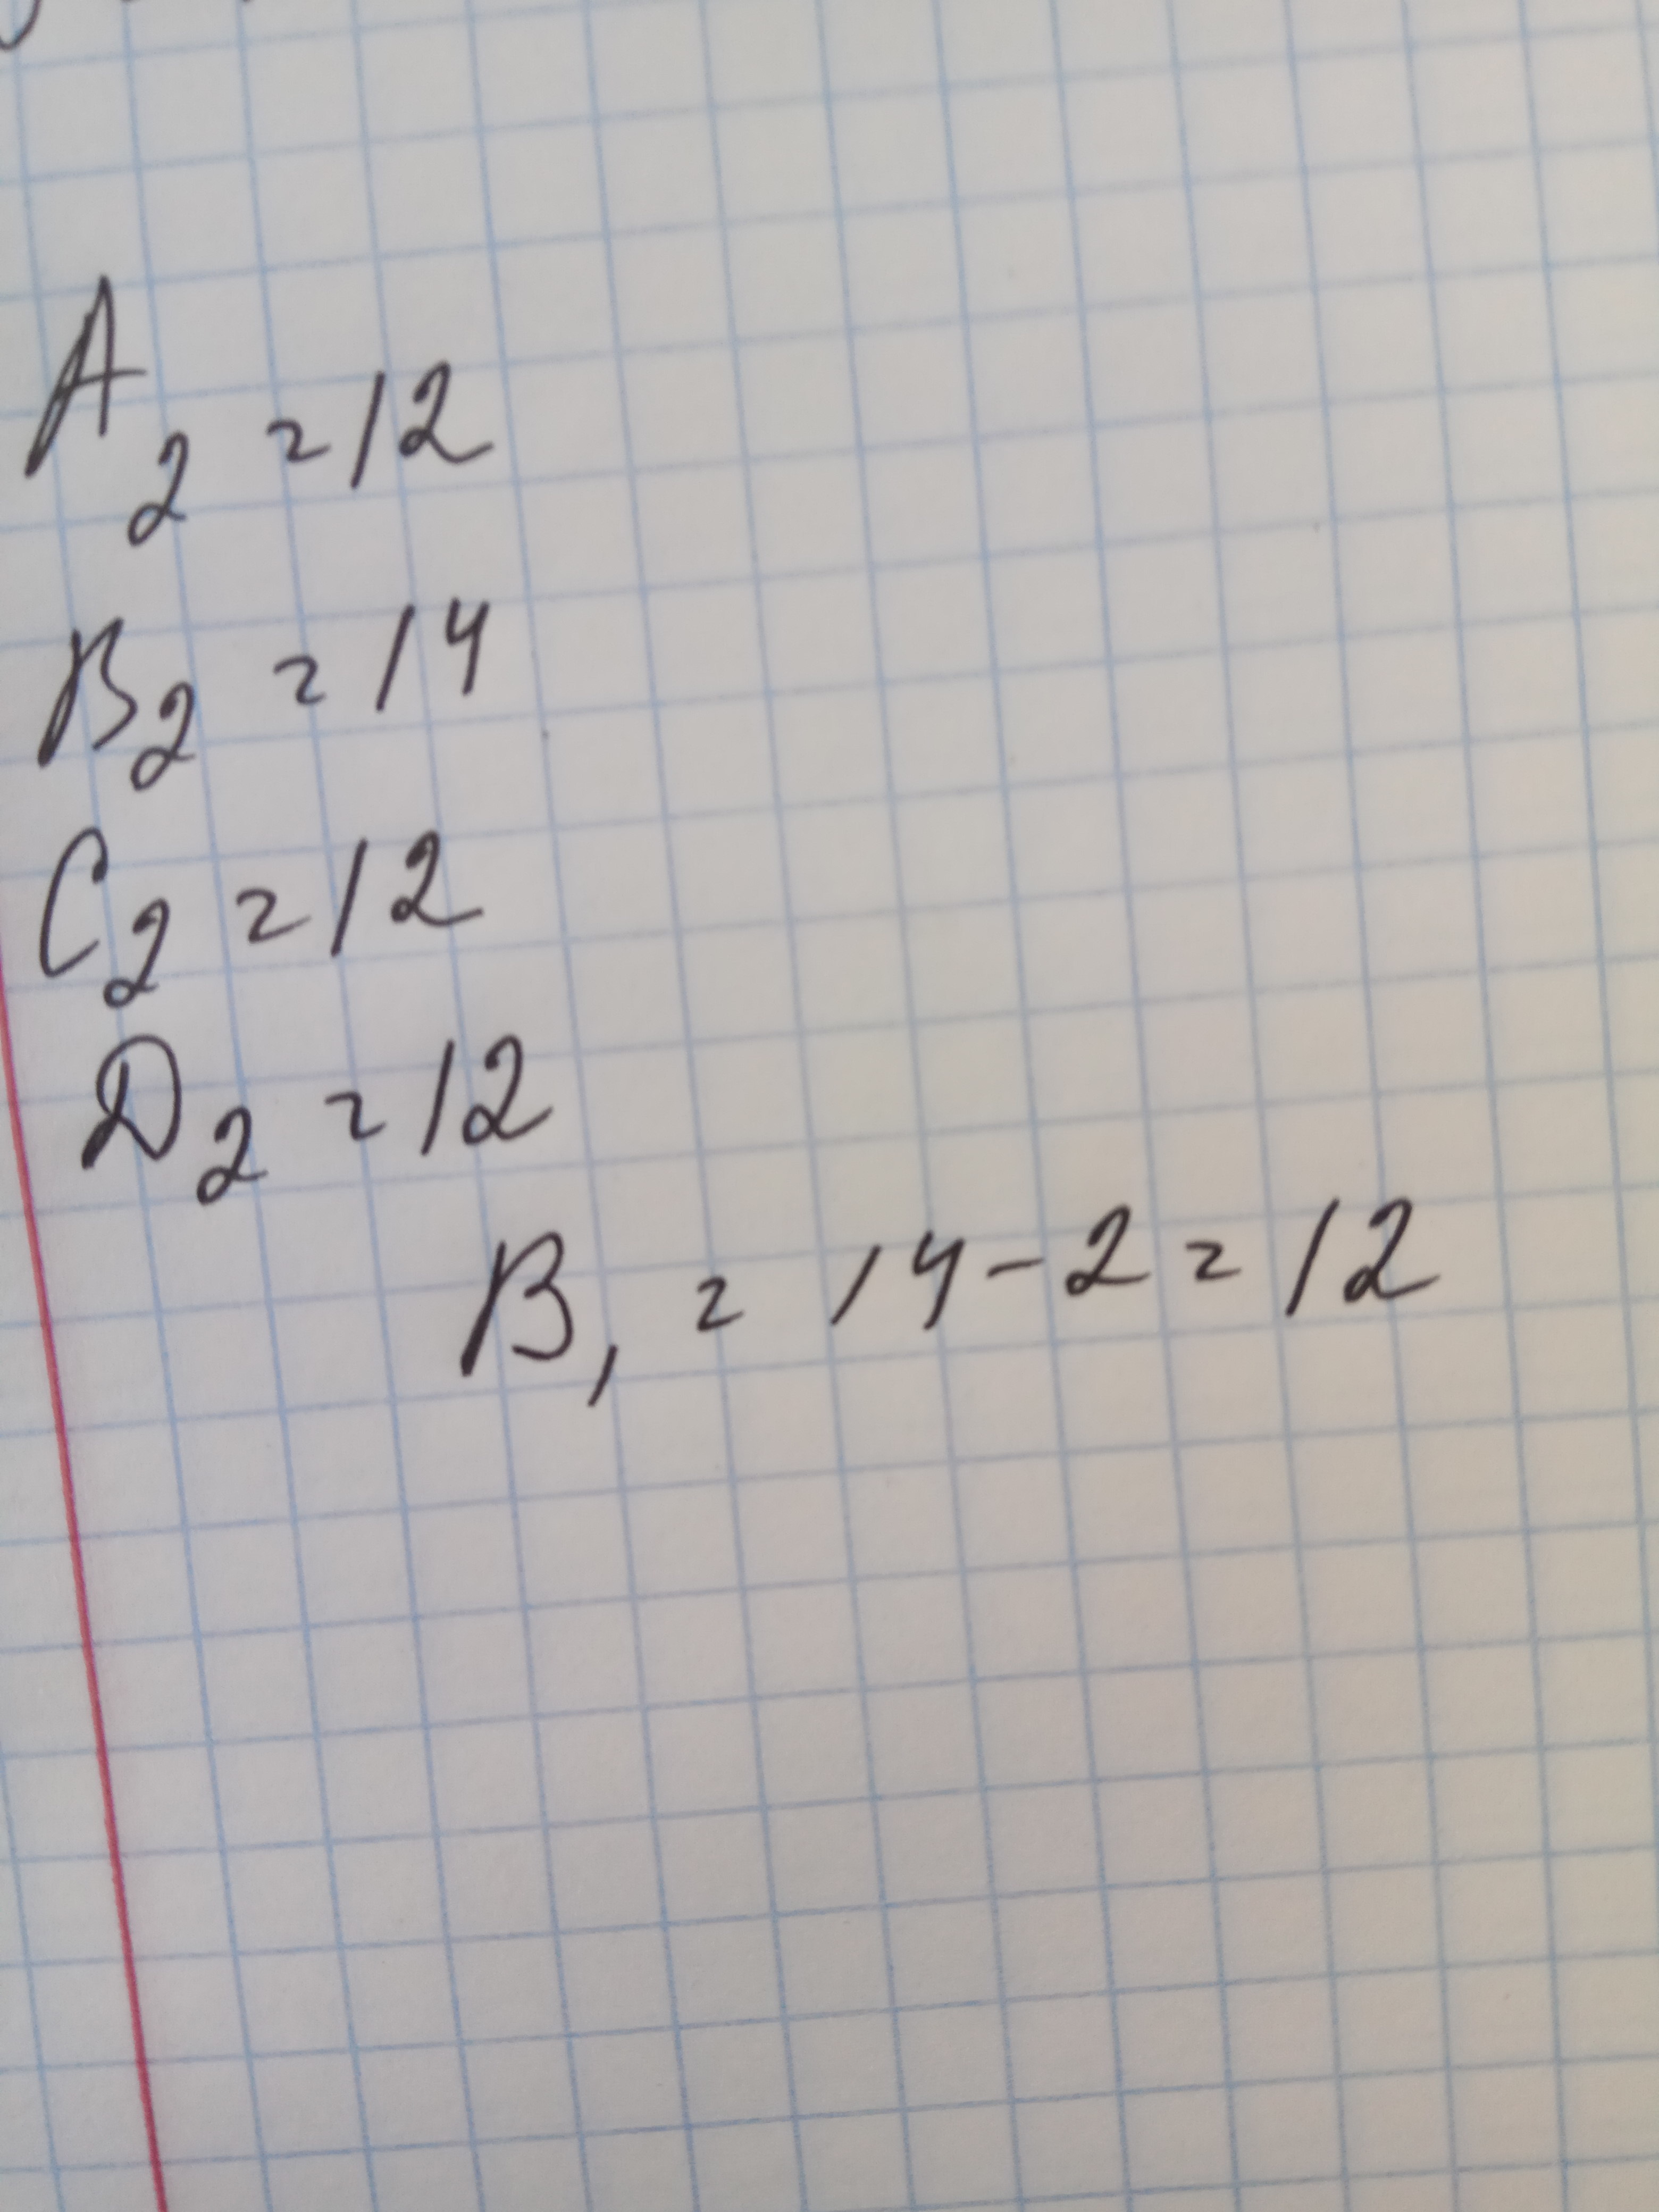 A₂ = 12
B₂ = 14
C₂ = 12
D₂ = 12
B₁ = 14 - 2 = 12